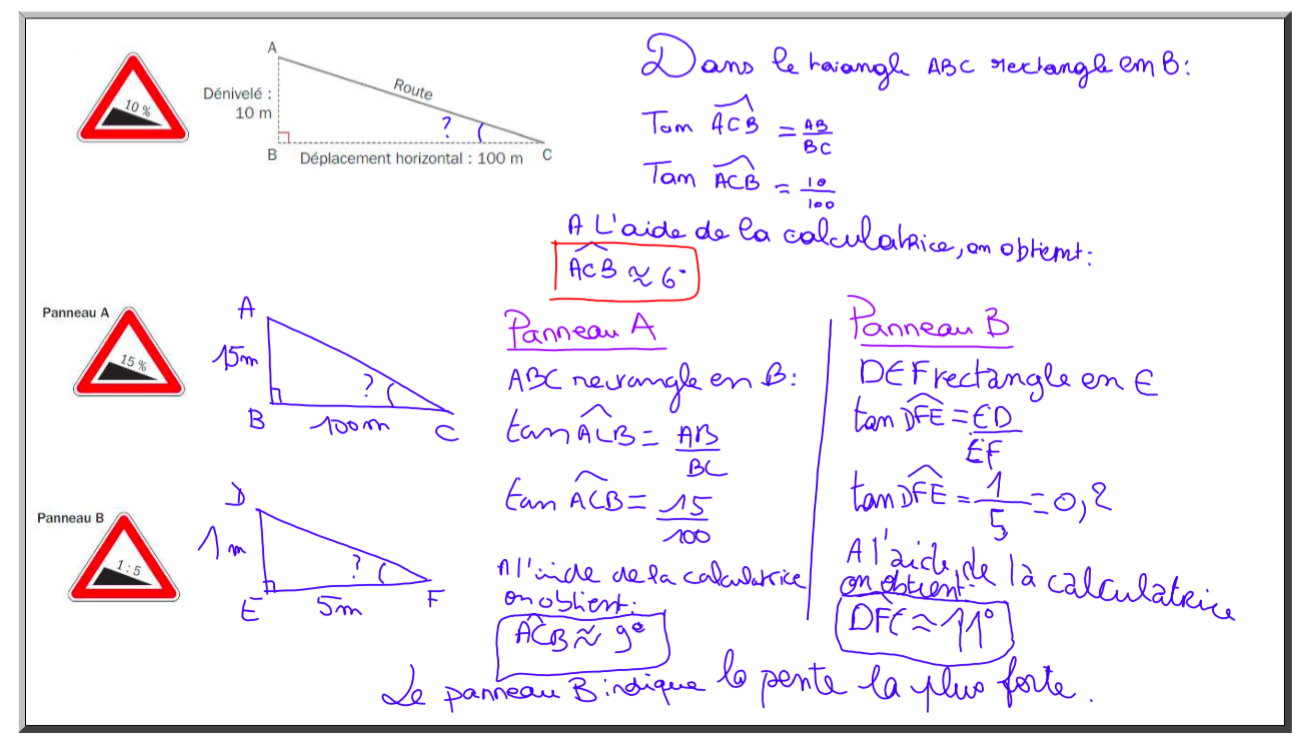 10 %
A
Dénivelé :
10 m
Route
?
B
Déplacement horizontal : 100 m
C
Dans le triangle ABC rectangle en B:
Tan ACB = AB
BC
Tan ACB = 10
100
A L'aide de la calculatrice, on obtient:
ACB ≈ 6°
Panneau A
15 %
A
15m
?
B
100m
C
Panneau A
ABC rectangle en B:
tan ACB = AB
BC
tan ACB = 15
100
A l'aide de la calculatrice
on obtient:
ACB ≈ 9°
Panneau B
1 : 5
D
1 m
?
E
5m
F
Panneau B
DEF rectangle en E
tan DFE = ED
EF
tan DFE = 1
5
= 0,2
A l'aide de là calculatrice
on obtient:
DFE ≈ 11°
Le panneau B indique la pente la plus forte.